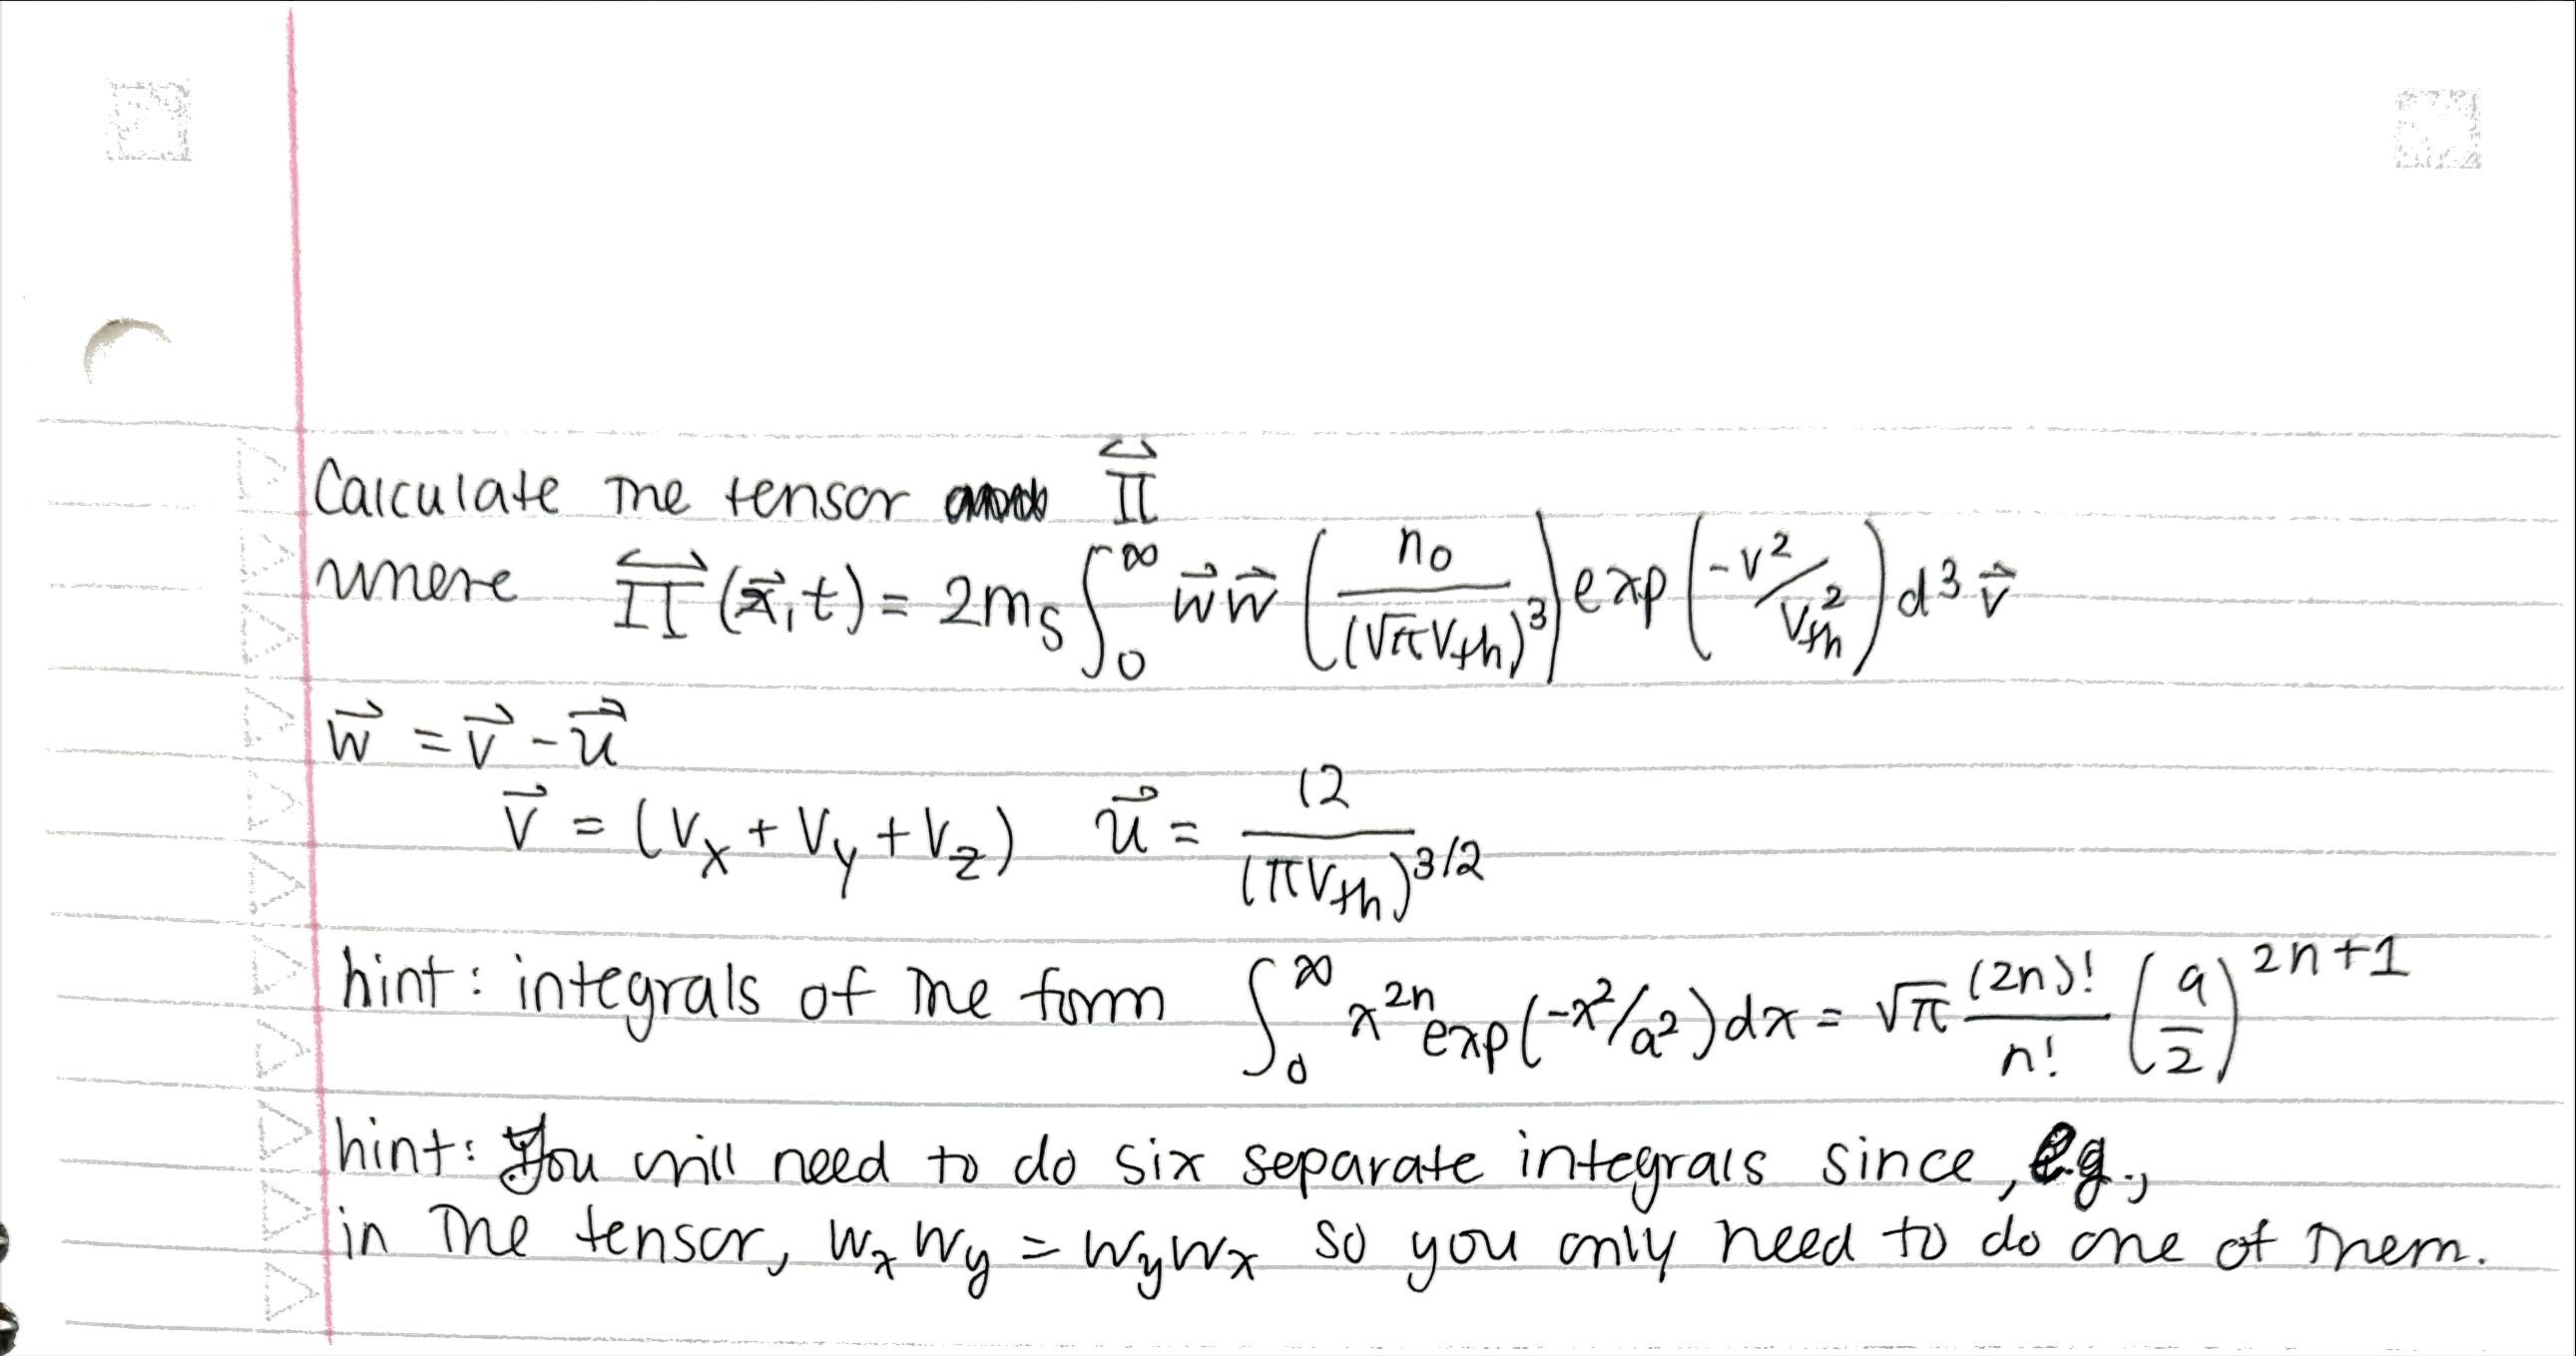 Calculate the tensor Π⃡
where Π⃡(x⃗,t) = 2m_s ∫_0^∞ w⃗w⃗ (n_0/(√π V_th)^3) exp(-v^2/V_th^2) d^3v⃗
w⃗ = v⃗ - u⃗
v⃗ = (V_x + V_y + V_z) u⃗ = 12/(πV_th)^{3/2}
hint: integrals of the form ∫_0^∞ x^{2n} exp(-x^2/a^2) dx = √π (2n)!/n! (a/2)^{2n+1}
hint: You will need to do six separate integrals since, e.g.,
in the tensor, W_x W_y = W_y W_x so you only need to do one of them.